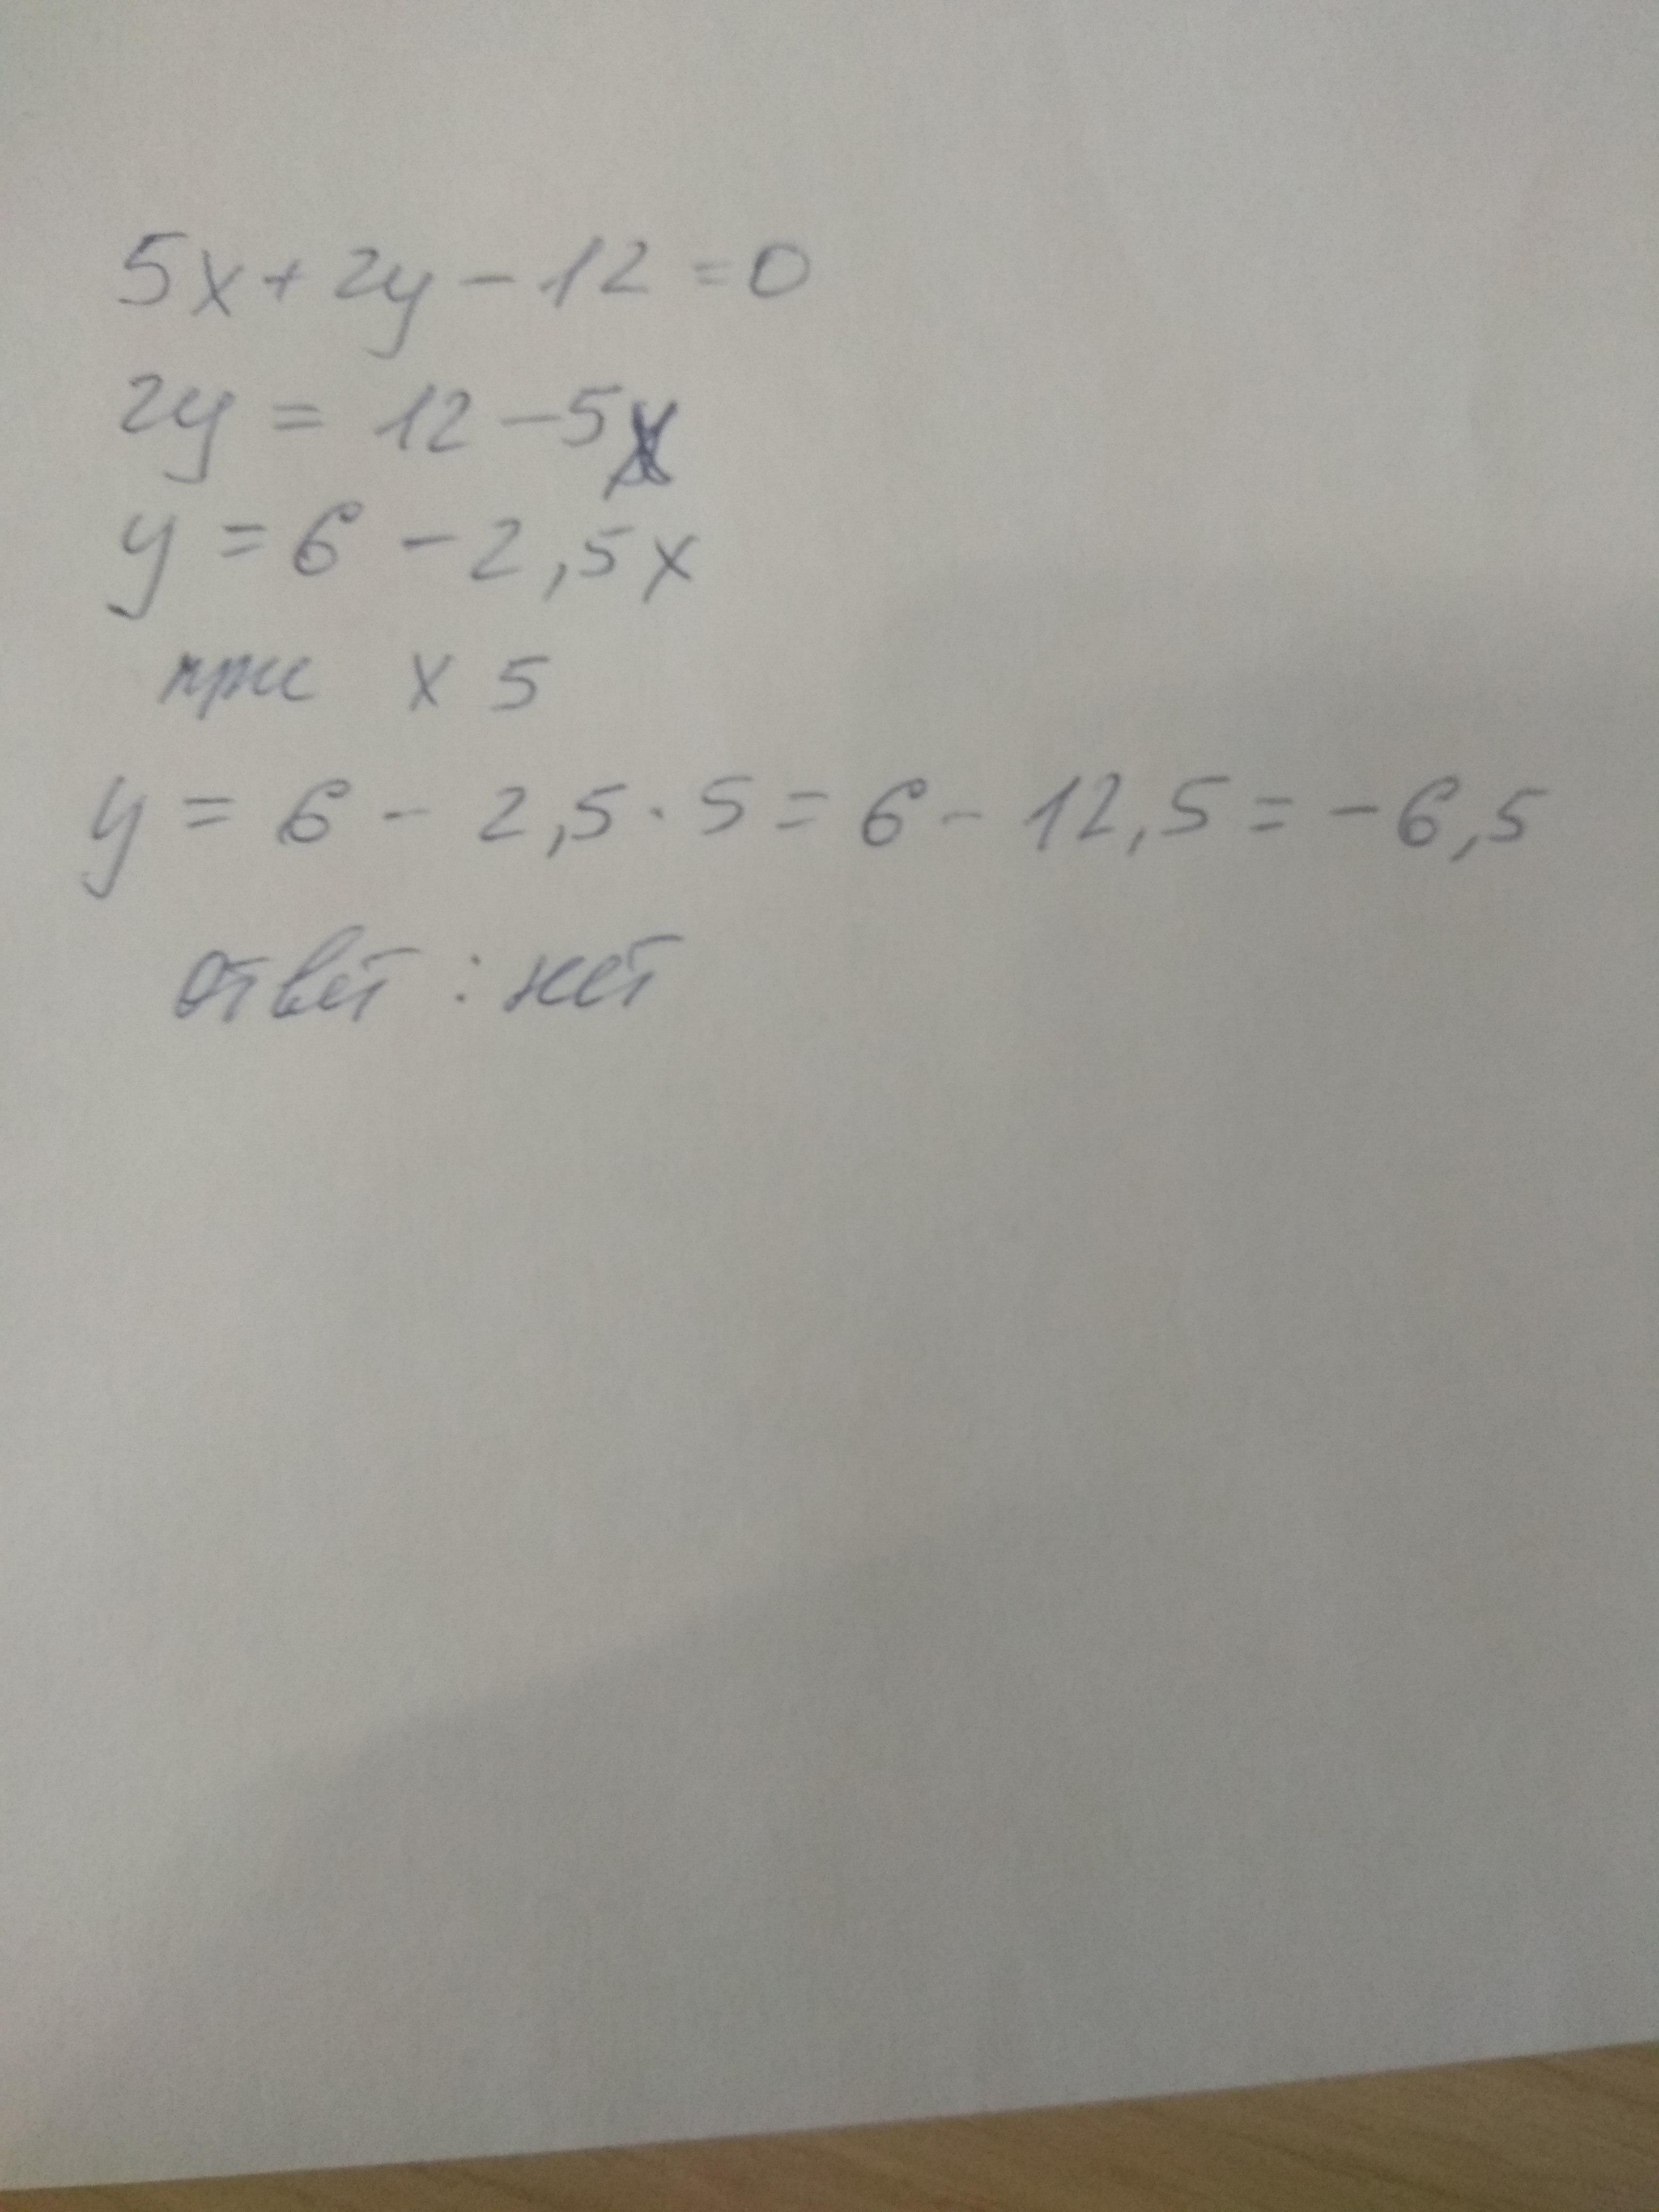 5x + 2y - 12 = 0
2y = 12 - 5x
y = 6 - 2,5x
при x 5
y = 6 - 2,5 · 5 = 6 - 12,5 = -6,5
ответ : нет